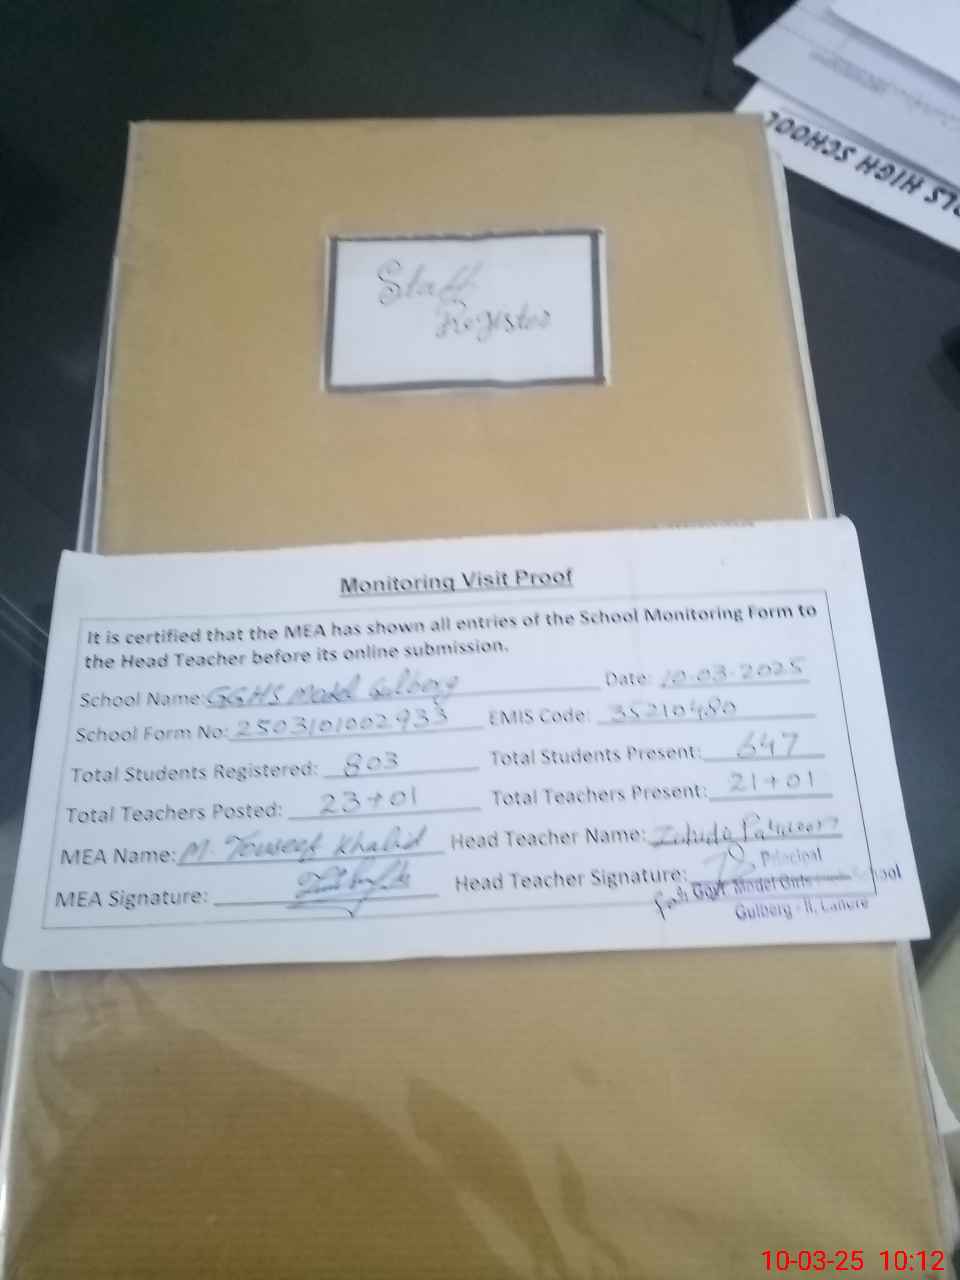 OLS HIGH SCHOOL
Staff
Register
Monitoring Visit Proof
It is certified that the MEA has shown all entries of the School Monitoring Form to
the Head Teacher before its online submission.
School Name: GGHS Model Gulberg Date: 10-03-2025
School Form No: 2503101002933 EMIS Code: 35210480
Total Students Registered: 803 Total Students Present: 647
Total Teachers Posted: 23+01 Total Teachers Present: 21+01
MEA Name: M. Touseef Khalid Head Teacher Name:
MEA Signature: Head Teacher Signature:
Principal
Govt Model Girls School
Gulberg - II, Lahore
10-03-25 10:12